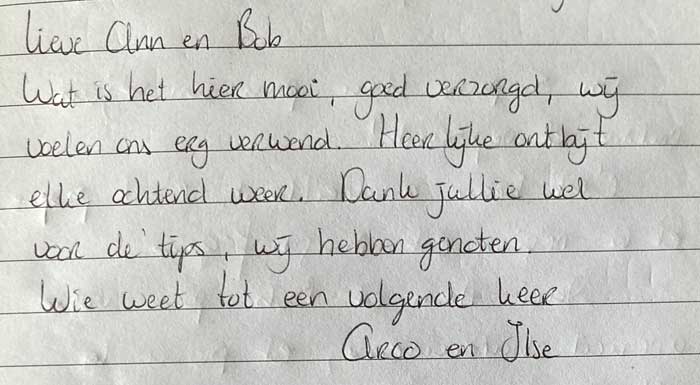 lieve Ann en Bob
Wat is het hier mooi, goed verzorgd, wij
voelen ons erg verwend. Heerlijke ontbijt
elke ochtend weer. Dank jullie wel
voor de tips, wij hebben genoten.
Wie weet tot een volgende keer
Arco en Ilse